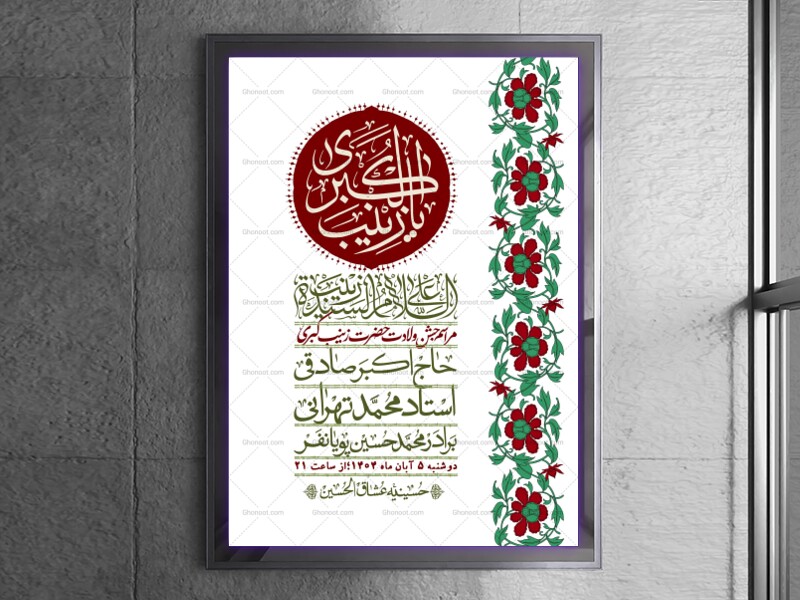 یا زینب الکبری
السلام علی السیدة زینب
مراسم جشن ولادت حضرت زینب کبری
حاج اکبر صادقی
استاد محمد تهرانی
برادر محمد حسین پویانفر
دوشنبه ۵ آبان ماه ۱۴۰۴؛از ساعت ۲۱
حسینیه عشاق الحسین
Ghonoot.com